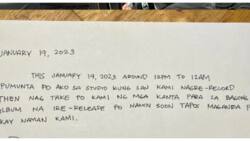 JANUARY 19, 2023
THIS JANUARY 19, 2023 AROUND 12PM TO 12AM
PUMUNTA PO AKO SA STUDIO KUNG SAN KAMI NAGRE-RECORD
THEN NAG TAKE PO KAMI NG MGA KANTA PARA SA BAGONG
ALBUM NA IRE-RELEASE PO NAMIN SOON TAPOS MAGANDA P
KAY NAMAN KAMI.